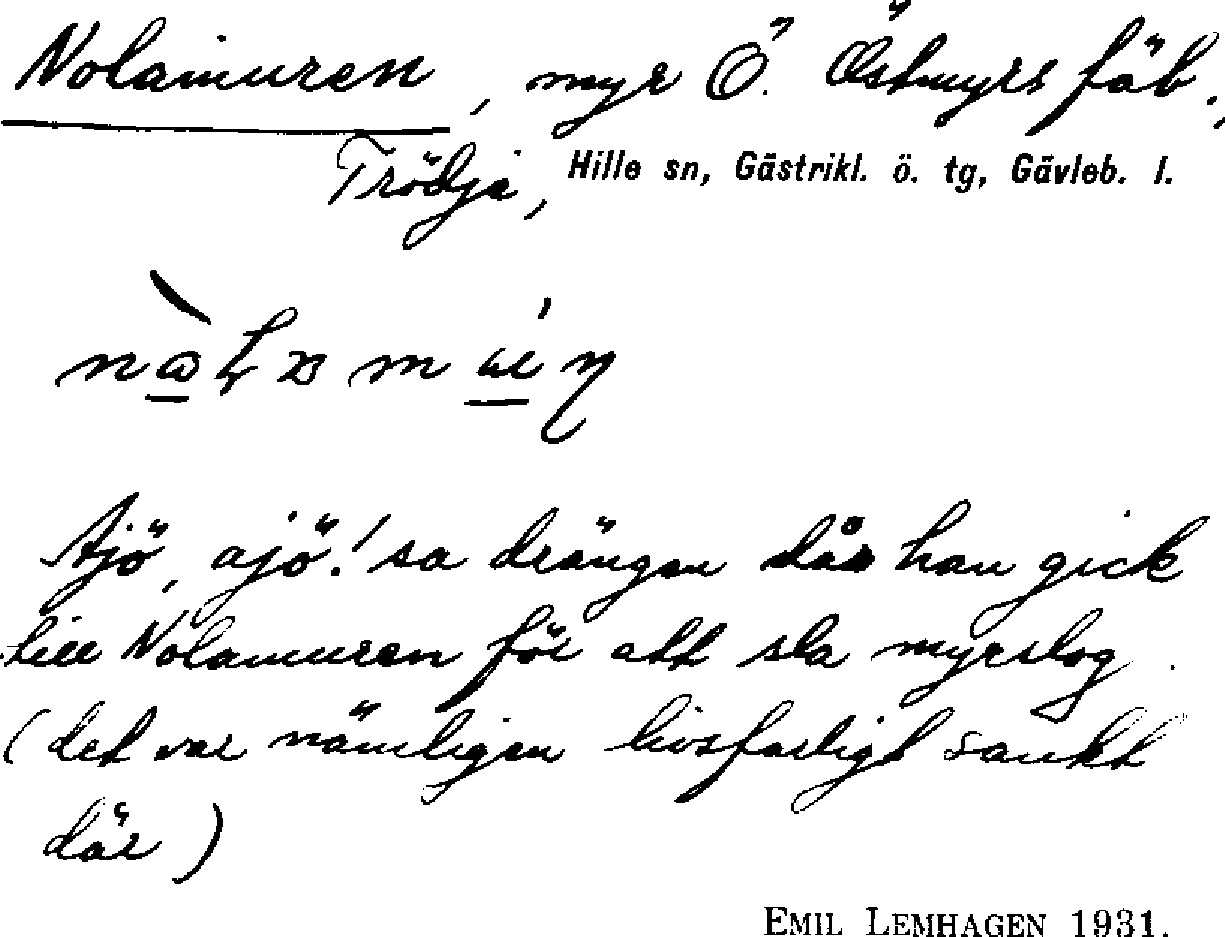 Nolamuren, myr Ö. Östmyrs fäb.,
Trödje, Hille sn, Gästrikl. ö. tg, Gävleb. l.
Ajö, ajö! sa drängen då han gick
till Nolamuren för att slå myrslog.
(det var nämligen livsfarligt sankt
där)
EMIL LEMHAGEN 1931.